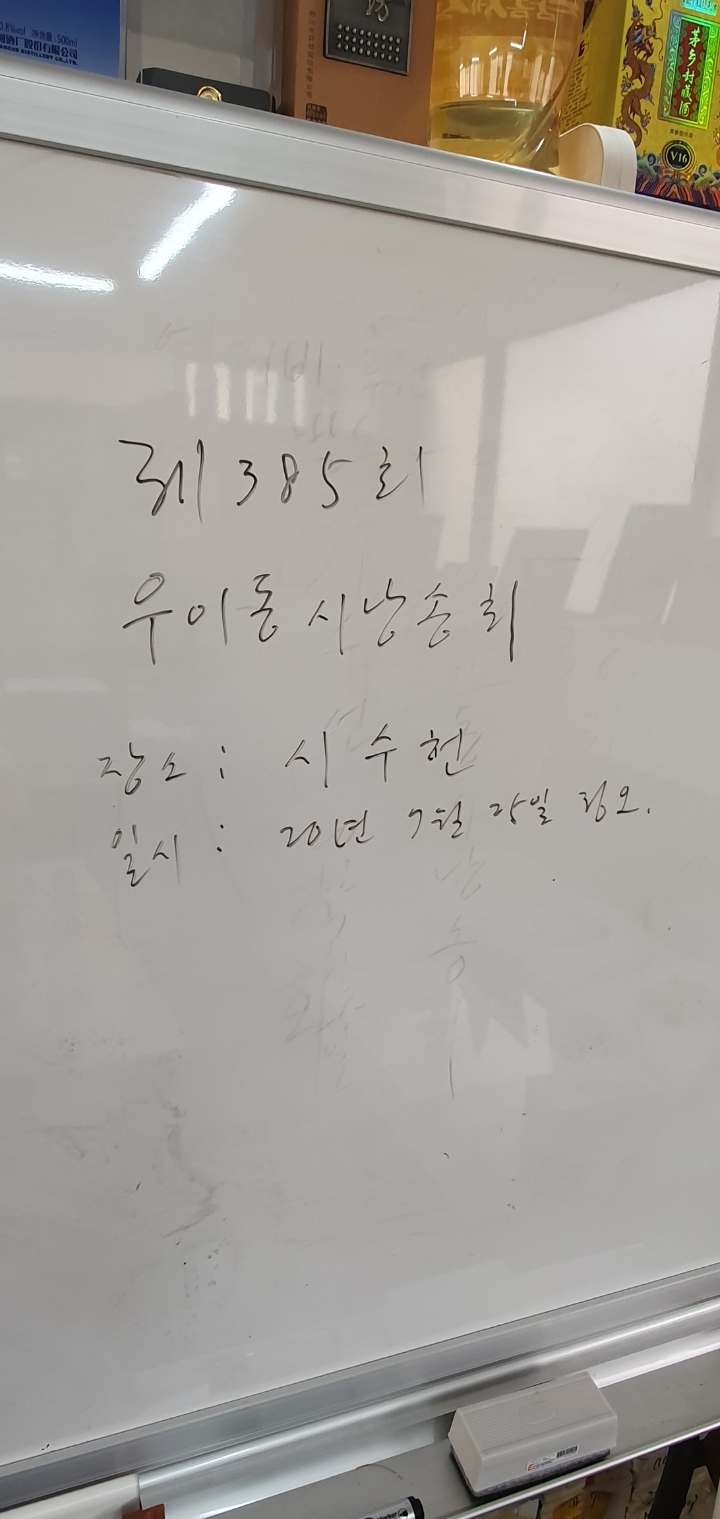 净含量:500ml
茅乡封藏酒
V16
제385회
우이동시낭송회
장소 : 시수헌
일시 : 20년 7월 25일 정오.